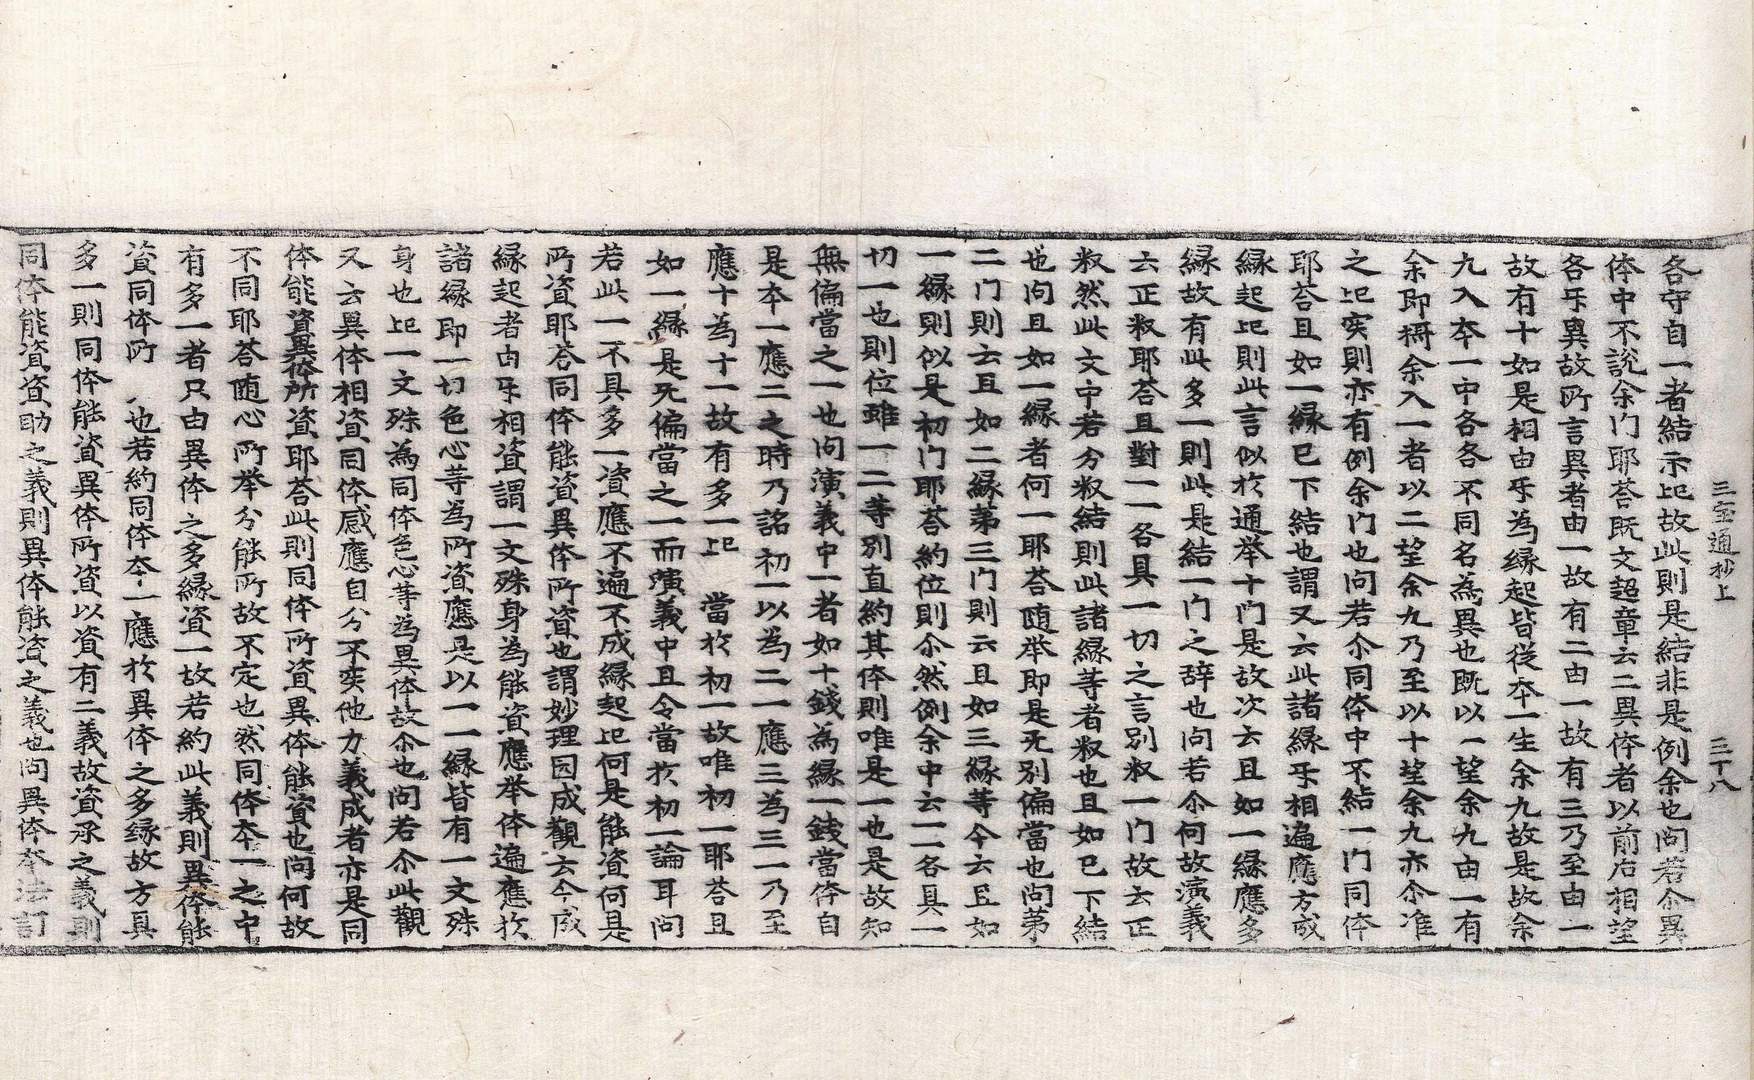 三宝通抄上　三十八
各守自一者結示也故此則是結非是例余也问若尒異
体中不說余门耶荅旣文超章云二異体者以前后相望
各㸦異故所言異者由一故有二由一故有三乃至由一
故有十如是相由㸦為縁起皆從夲一生余九故是故余
九入夲一中各各不同名為異也旣以一望余九由一有
余即得余入一者以二望余九乃至以十望余九亦尒准
之也实則亦有例余门也问若尒同体中不結一门同体
耶荅且如一縁已下結也謂又云此諸縁㸦相遍應方成
縁起也則此言似扵通举十门是故次云且如一縁應多
縁故有此多一則此是結一门之辞也问若尒何故演義
云正𠬧耶荅且對一一各具一切之言别𠬧一门故云正
𠬧然此文中若分𠬧結則此諸縁等者𠬧也且如已下結
也问且如一縁者何一耶荅随举即是无别偏當也问第
二门則云且如二縁第三门則云且如三縁等今云且如
一縁則似是初门耶荅約位則尒然例余中云一一各具一
切一也則位雖一二等别直約其体則唯是一也是故知
無偏當之一也问演義中一者如十錢為縁一錢當体自
是夲一應二之時乃詺初一以為二一應三為三一乃至
應十為十一故有多一也　當扵初一故唯初一耶荅且
如一縁是无偏當之一而演義中且令當扵初一論耳问
若此一不具多一資應不遍不成縁起也何是能資何是
所資耶荅同体能資異体所資也謂妙理因成觀云今成
縁起者由㸦相資謂一文殊身為能資應举体遍應扵
諸縁即一切色心等為所資應是以一一縁皆有一文殊
身也也一文殊為同体色心等為異体故尒也问若尒此觀
又云異体相資同体感應自分不实他力義成者亦是同
体能資異体所資耶荅此則同体所資異体能資也问何故
不同耶荅随心所举分能所故不定也然同体夲一之中
有多一者只由異体之多縁資一故若約此義則異体能
資同体所　也若約同体夲一應扵異体之多縁故方具
多一則同体能資異体所資以資有二義故資承之義則
同体能資資助之義則異体能資之義也问異体夲法訂